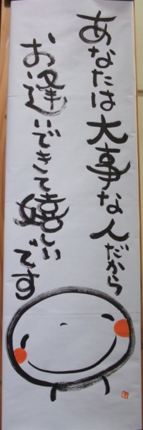 あなたは大事な人だから
お逢いできて嬉しいです